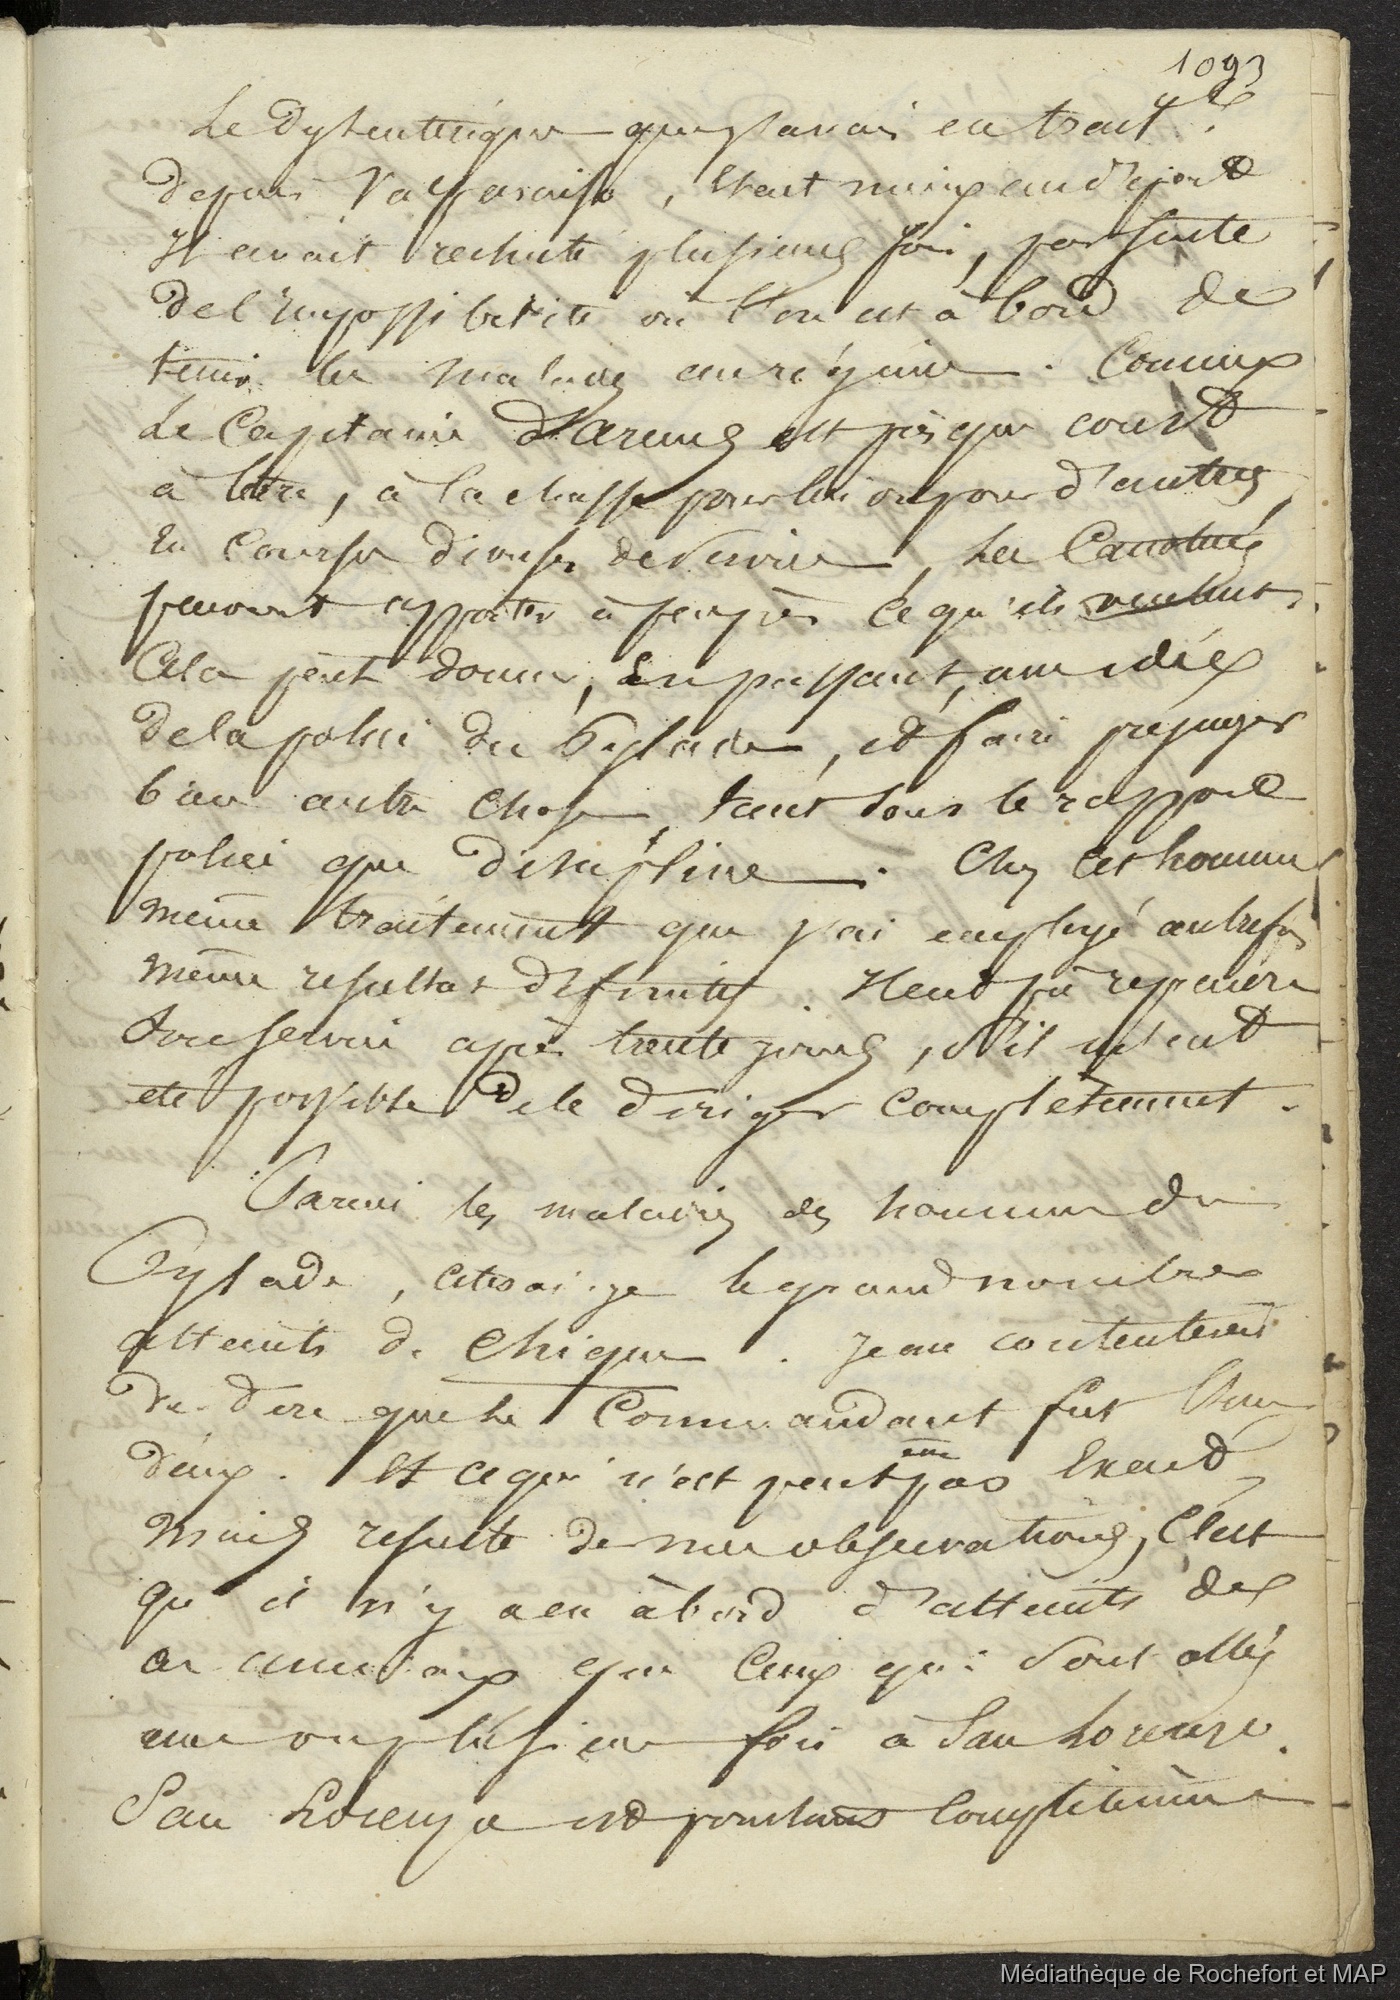 1093
Le Dysenterique que j'avais en trait.t
depuis Valparaiso, etait mieux aud'epart
Il avait rechuté plusieurs fois, par suite
de l'impossibilité où l'on est à bord de
tenir les malades au régime. Comme
Le Capitaine d'armes est presque court
à terre, à la chasse pour lui ou pour d'autres,
En Courses diverses de Service, Les Canotiers
peuvent apporter à peu près ce qu'ils veulent.
Cela peut donner, En passant, une idée
de la police du Pylade, et faire préjuger
bien autre chose, tant sous le rapport
police que discipline. Chez cet homme
même traitement que j'ai employé autrefois
même resultat définitif. Il eut pu reprendre
Son service après trente jours, s'il m'eut
été possible de le diriger complètement.
Parmi les maladies des hommes du
Pylade, citerai-je le grand nombre
atteints de Chique. Je me contenterai
de dire que le Commandant fut l'un
d'eux. Et ce qui n'est peut être pas Exact
mais resulte de mes observations, C'est
qu'il n'y a eu à bord d'atteints de
ces animaux que Ceux qui Sont allés
une ou plusieurs fois à San Lorenzo.
San Lorenzo est pourtant Complètement
Médiathèque de Rochefort et MAP